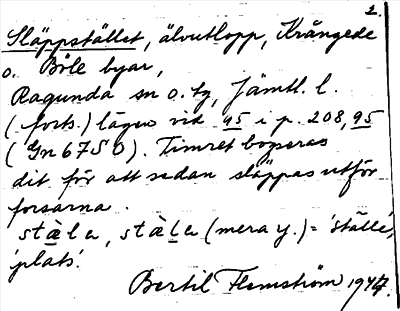 2.
Släppstället, älvutlopp, Krångede
o. Böle byar,
Ragunda sn o. tg, Jämtl. l.
(forts.) lägen vid 95 i p. 208,95
(Gn 67SO). Timret bogseras
dit för att sedan släppas utför
forsarna.
stàla, stàla (mera y.) = 'ställe',
'plats'.
Bertil Flemström 1947.